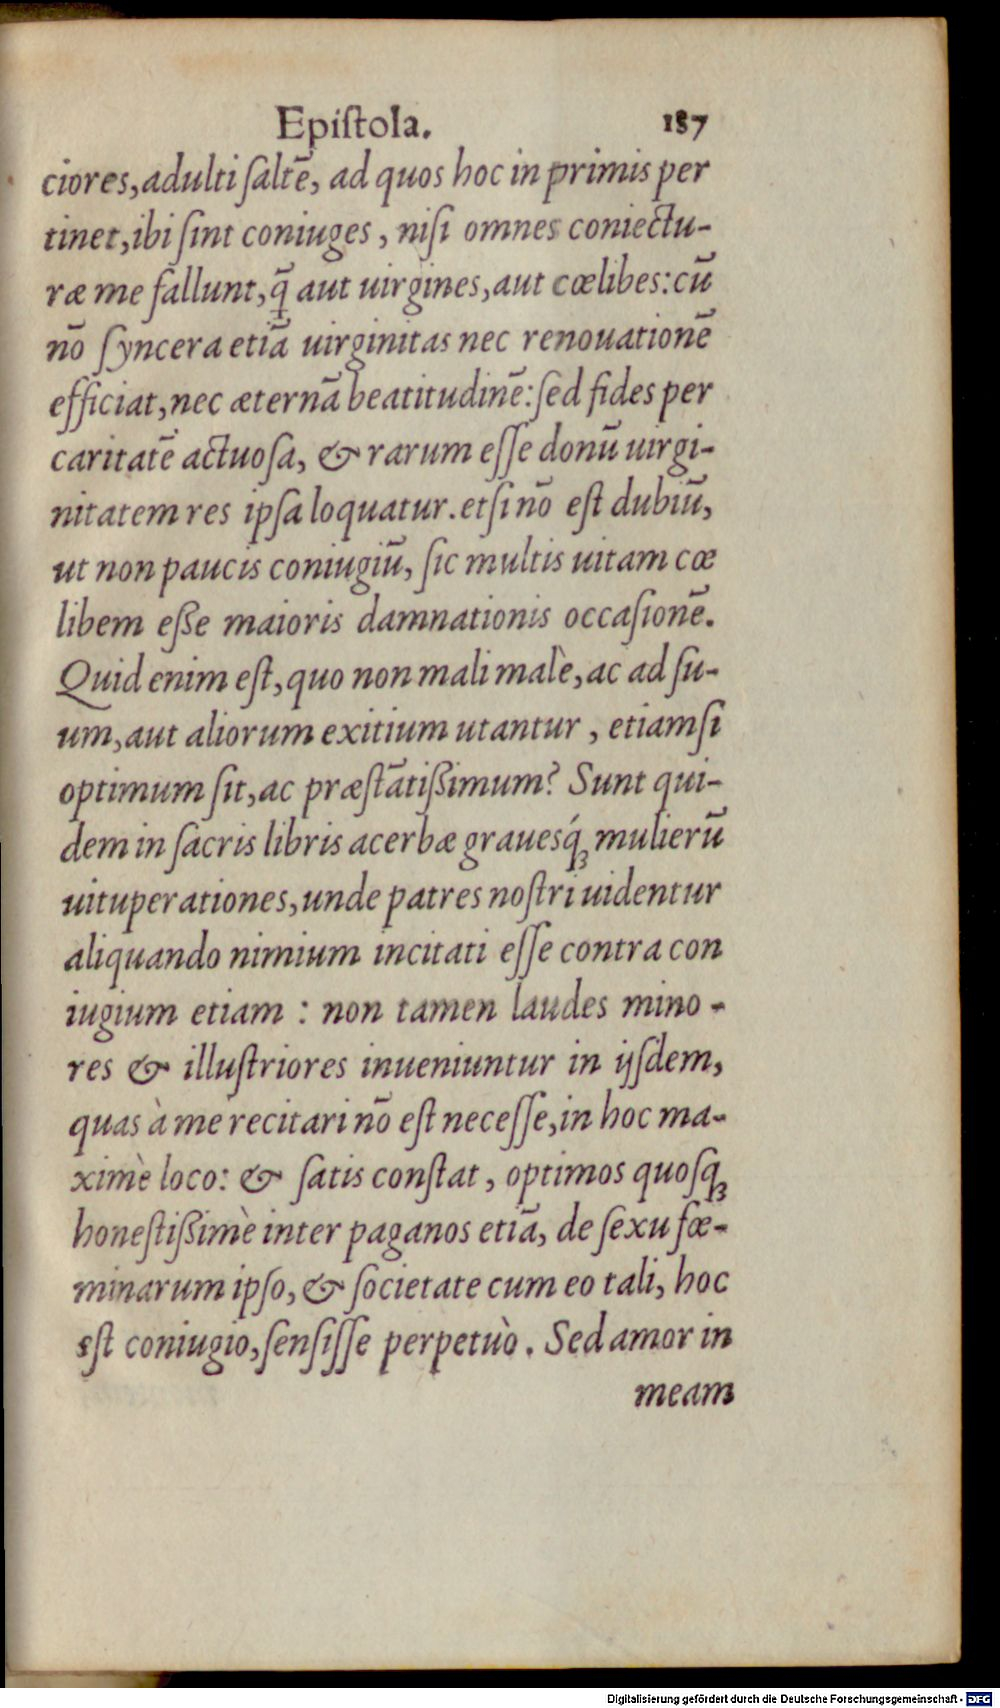 Epiſtola. 187
ciores, adulti ſaltē, ad quos hoc in primis per
tinet, ibi ſint coniuges, niſi omnes coniectu-
ræ me fallunt, q̃ aut uirgines, aut cœlibes: cū
nō ſyncera etiā uirginitas nec renouationē
efficiat, nec æternā beatitudinē: ſed fides per
caritatē actuoſa, & rarum eſſe donū uirgi-
nitatem res ipſa loquatur. etſi nō eſt dubiū,
ut non paucis coniugiū, ſic multis uitam cœ
libem eſſe maioris damnationis occaſionē.
Quid enim eſt, quo non mali malè, ac ad ſu-
um, aut aliorum exitium utantur, etiamſi
optimum ſit, ac præſtātißimum? Sunt qui-
dem in ſacris libris acerbæ grauesq́ꝫ mulierū
uituperationes, unde patres noſtri uidentur
aliquando nimium incitati eſſe contra con
iugium etiam: non tamen laudes mino-
res & illuſtriores inueniuntur in ijſdem,
quas à me recitari nō eſt neceſſe, in hoc ma-
ximè loco: & ſatis conſtat, optimos quoſqꝫ
honeſtißimè inter paganos etiā, de ſexu fœ-
minarum ipſo, & ſocietate cum eo tali, hoc
eſt coniugio, ſenſiſſe perpetuò. Sed amor in
meam
Digitalisierung gefördert durch die Deutsche Forschungsgemeinschaft - DFG